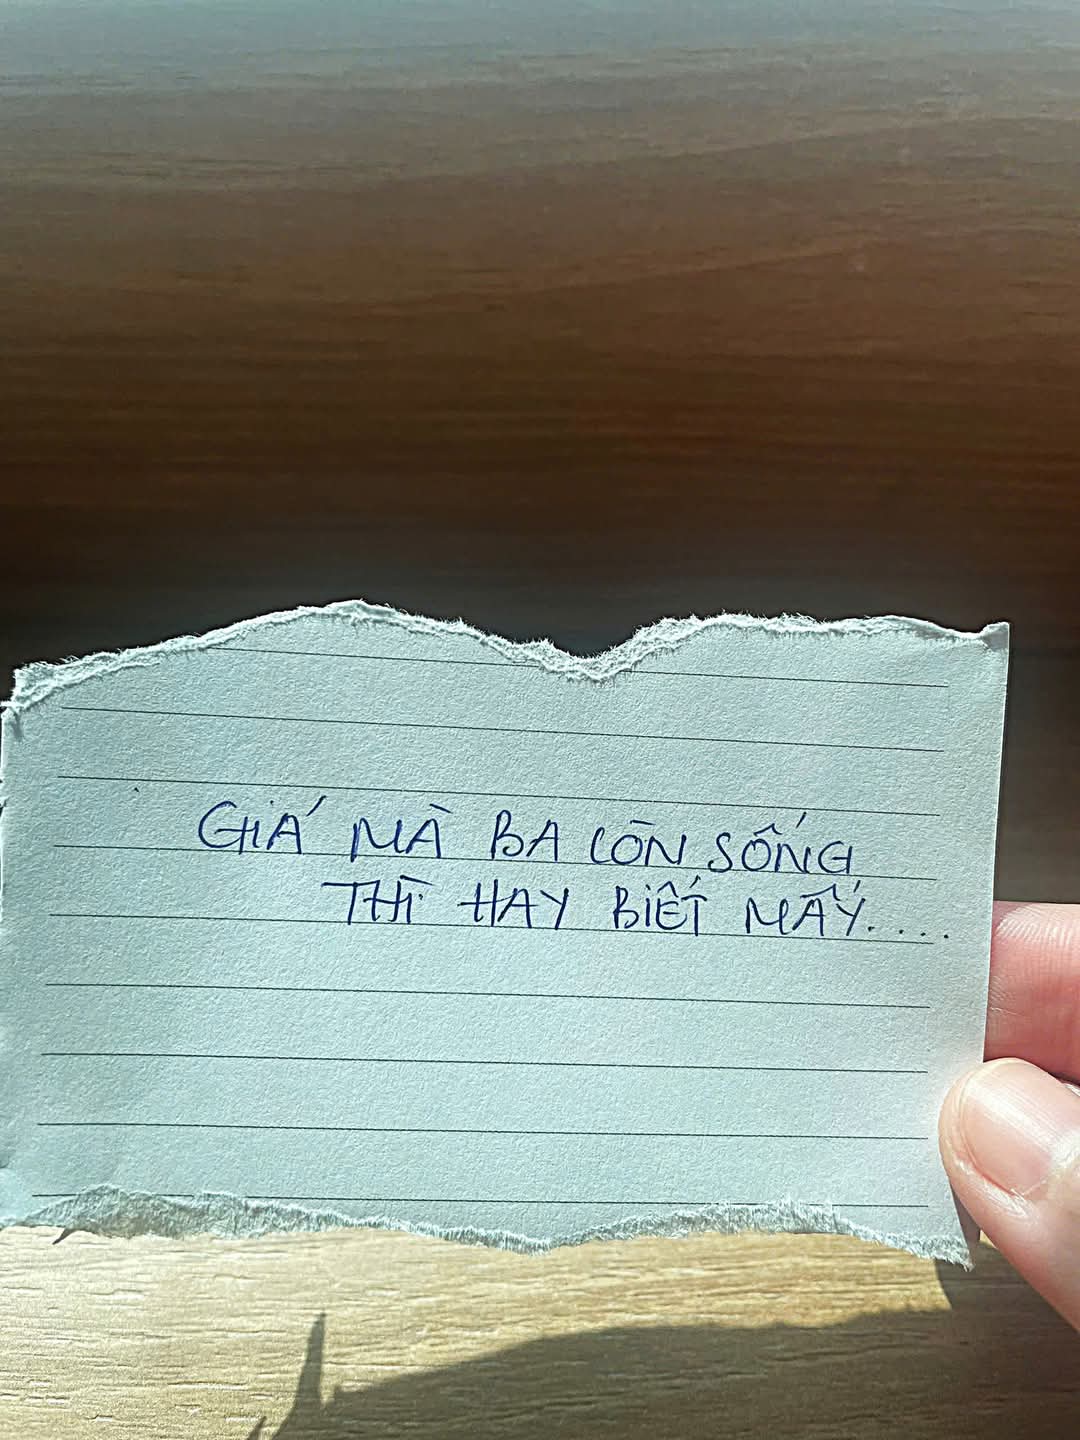 GIÁ MÀ BA CÒN SỐNG
THÌ HAY BIẾT MẤY.....